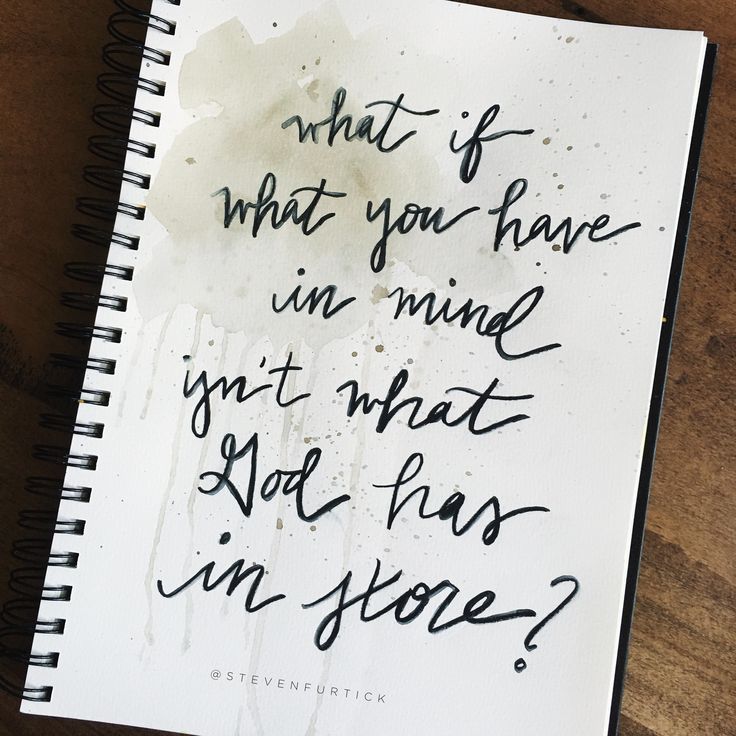 what if
what you have
in mind
isn't what
God has
in store?
@STEVENFURTICK